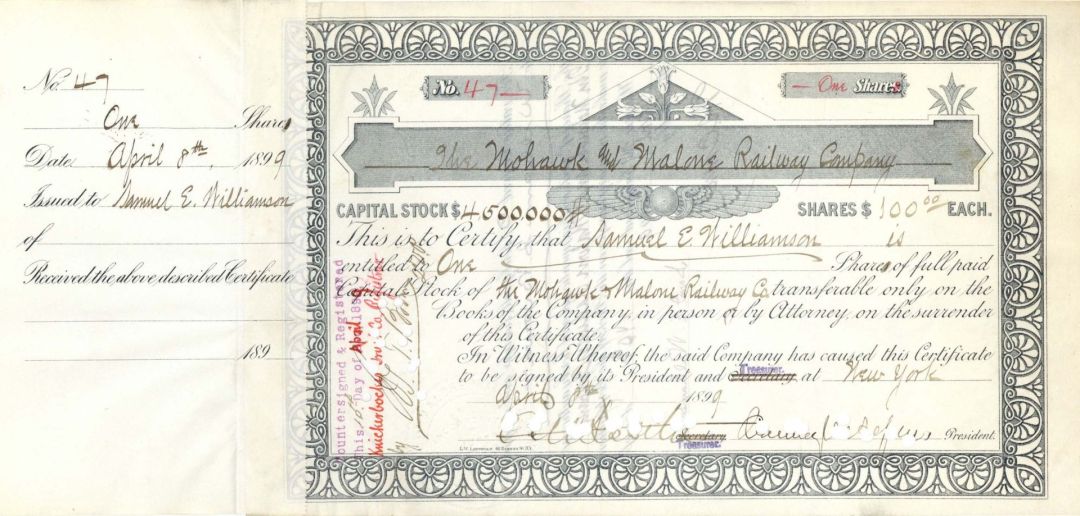 No. 47
One Shares
Date April 8th, 1899
Issued to Samuel E. Williamson
of
Received the above described Certificate
189
No. 47
One Shares
The Mohawk and Malone Railway Company
CAPITAL STOCK $4500,000 SHARES $100.00 EACH.
This is to Certify, that Samuel E Williamson is
entitled to One Shares of full paid
Capital Stock of the Mohawk & Malone Railway Co. transferable only on the
Books of the Company, in person or by Attorney, on the surrender
of this Certificate.
In Witness Whereof, the said Company has caused this Certificate
to be signed by its President and Secretary Treasurer. at New York
April 8th 1899
Secretary Treasurer. President.
Countersigned & Registered
This Day of April 1899
Knickerbocker
by